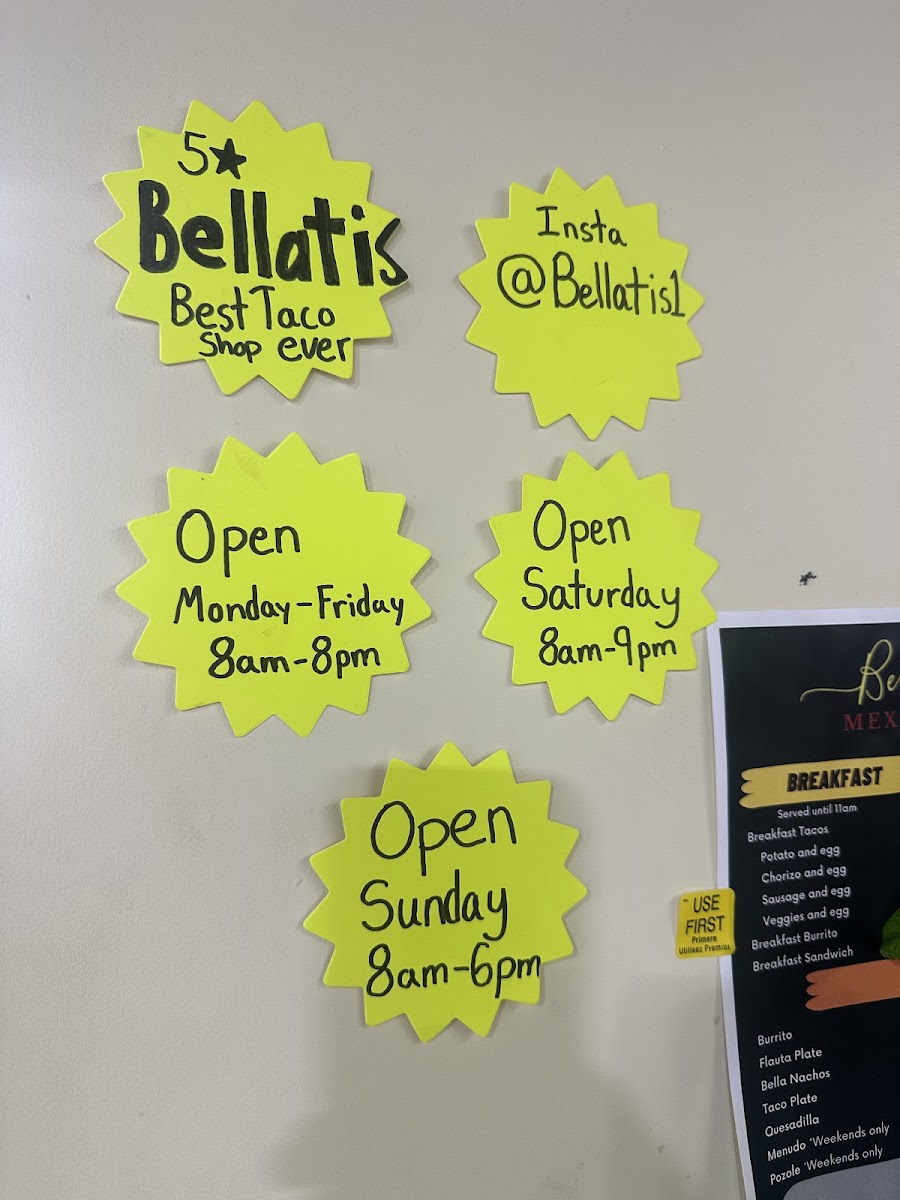 5★
Bellatis
Best Taco
Shop ever
Insta
@Bellatis1
Open
Monday-Friday
8am-8pm
Open
Saturday
8am-9pm
Open
Sunday
8am-6pm
USE
FIRST
Primero
BREAKFAST
Served until 11am
Breakfast Tacos
Potato and egg
Chorizo and egg
Sausage and egg
Veggies and egg
Breakfast Burrito
Breakfast Sandwich
Burrito
Flauta Plate
Bella Nachos
Taco Plate
Quesadilla
Menudo *Weekends only
Pozole *Weekends only